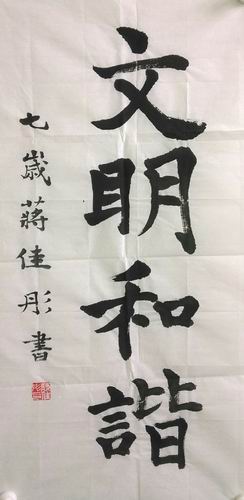 文明和諧
七歲蔣佳彤書